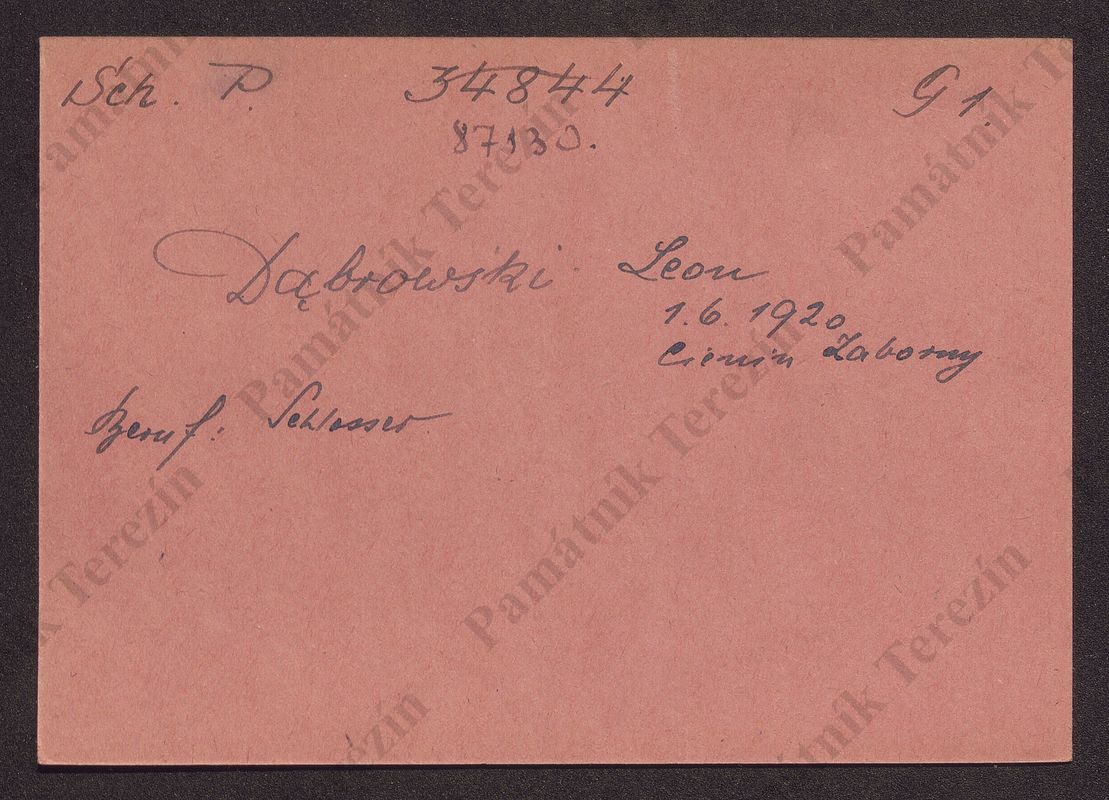 Sch. P. 34844 G 1.
87130.
Dąbrowski Leon
1.6. 1920
Cienin Zaborny
Beruf: Schlosser
Památník Terezín